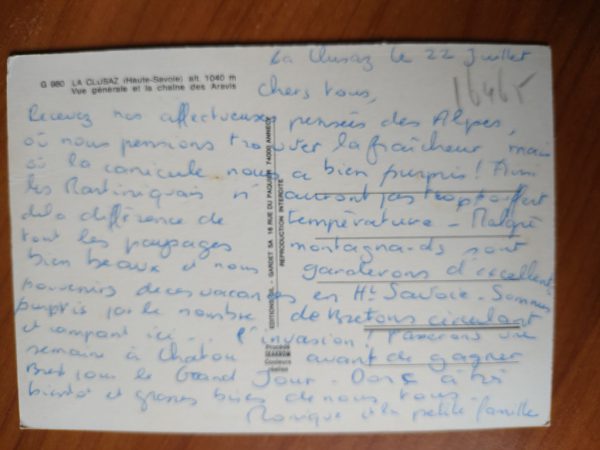 La Clusaz le 22 Juillet
G 980 LA CLUSAZ (Haute-Savoie) alt. 1040 m
Vue générale et la chaîne des Aravis
16465
Chers tous,
Recevez nos affectueuses pensées des Alpes,
où nous pensions trouver la fraîcheur, mais
où la canicule nous a bien surpris! Ainsi
les Martiniquais n'auront pas trop souffert
de la différence de température - Malgré
tout les paysages montagnards sont
bien beaux et nous garderons d'excellents
souvenirs de ces vacances en Hte Savoie. Sommes
surpris par le nombre de Bretons circulant
et campant ici... l'invasion! Passerons une
semaine à Chatou avant de gagner
Brest pour le Grand Jour - Donc à très
bientôt et grosses bises de nous tous -
Monique et la petite famille
EDITIONS GIL - GARDET SA 16 RUE DU PAQUIER 74000 ANNECY
REPRODUCTION INTERDITE
Procédé
Couleurs
réalisé